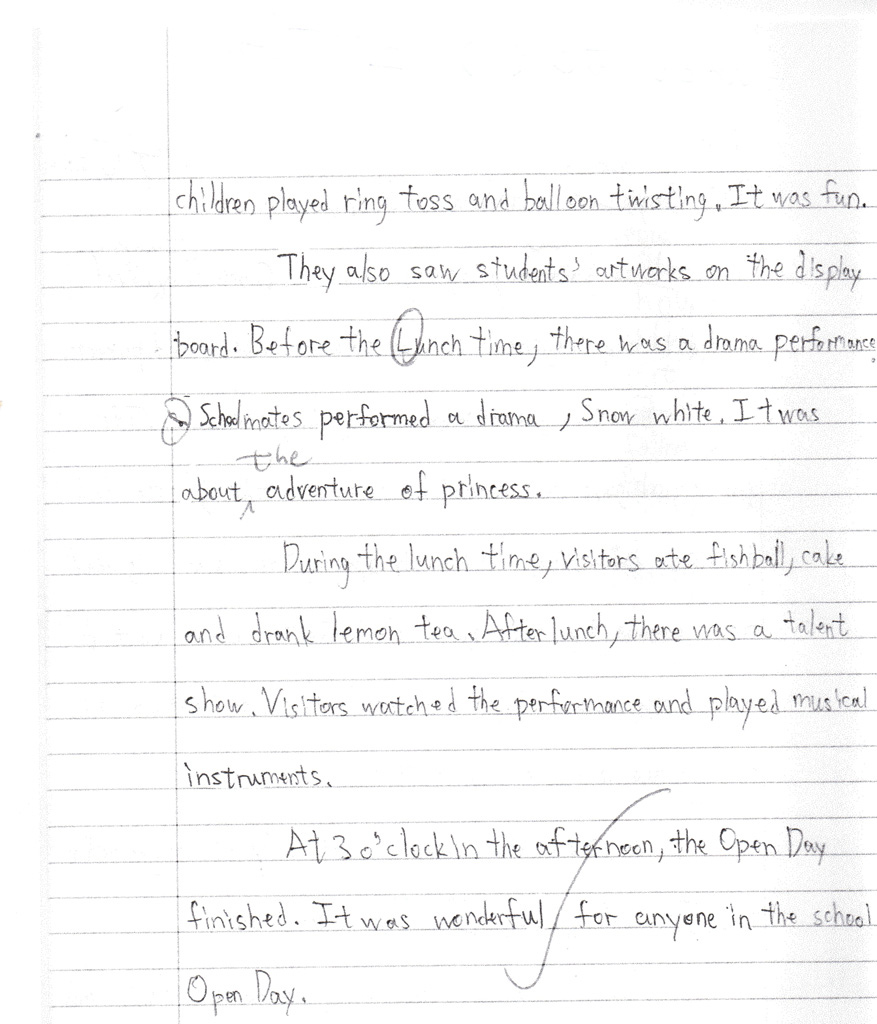 children played ring toss and balloon twisting. It was fun.
They also saw students' artworks on the display
board. Before the Lunch time, there was a drama performance.
Schoolmates performed a drama, Snow white. It was
the
about adventure of princess.
During the lunch time, visitors ate fishball, cake
and drank lemon tea. After lunch, there was a talent
show. Visitors watched the performance and played musical
instruments.
At 3 o'clock in the afternoon, the Open Day
finished. It was wonderful for anyone in the school
Open Day.